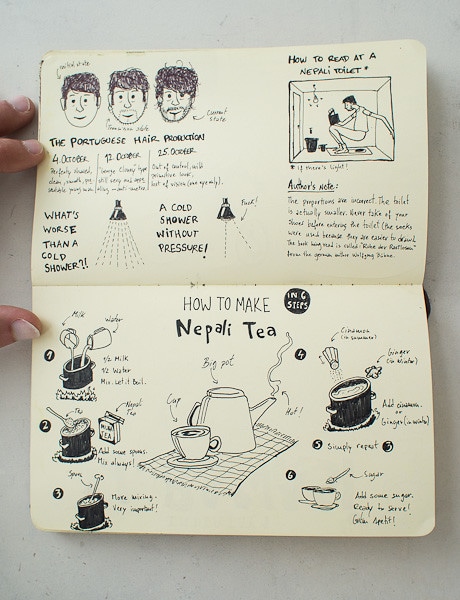 initial state
transition state
current state
THE PORTUGUESE HAIR PRODUCTION
4. OCTOBER
Perfectly shaved,
clean, smooth, gay,
sensible young man
12. OCTOBER
George Clooney type
still very nad sexy
25. OCTOBER
Out of control, wild
primitive look,
out of vision (one eye only).
WHAT'S
WORSE
THAN A
COLD
SHOWER?!
A COLD
SHOWER
WITHOUT
PRESSURE!
HOW TO READ AT A
NEPALI TOILET *
* if there's light!
Author's note:
The proportions are incorrect. The toilet
is actually smaller. Never take of your
shoes before entering the toilet (the socks
were used because they are easier to draw).
The book being read is called "Ruhe der Rastlosen"
from the german author Wolfgang Büscher.
HOW TO MAKE
Nepali Tea
IN 6
STEPS
1
Milk
Water
1/2 Milk
1/2 Water
Mix. Let it Boil.
2
Tea
Nepali
Tea
MILK
TEA
Add some spoons.
Mix always!
3
Spoon
More mixing.
Very important!
Big pot
Cup
Hot!
4
Cinnamon
(in summer)
Ginger
(in winter)
Add cinnamon
or
Ginger (in winter)
5 Simply repeat 3
6
Sugar
Add some sugar.
Ready to serve!